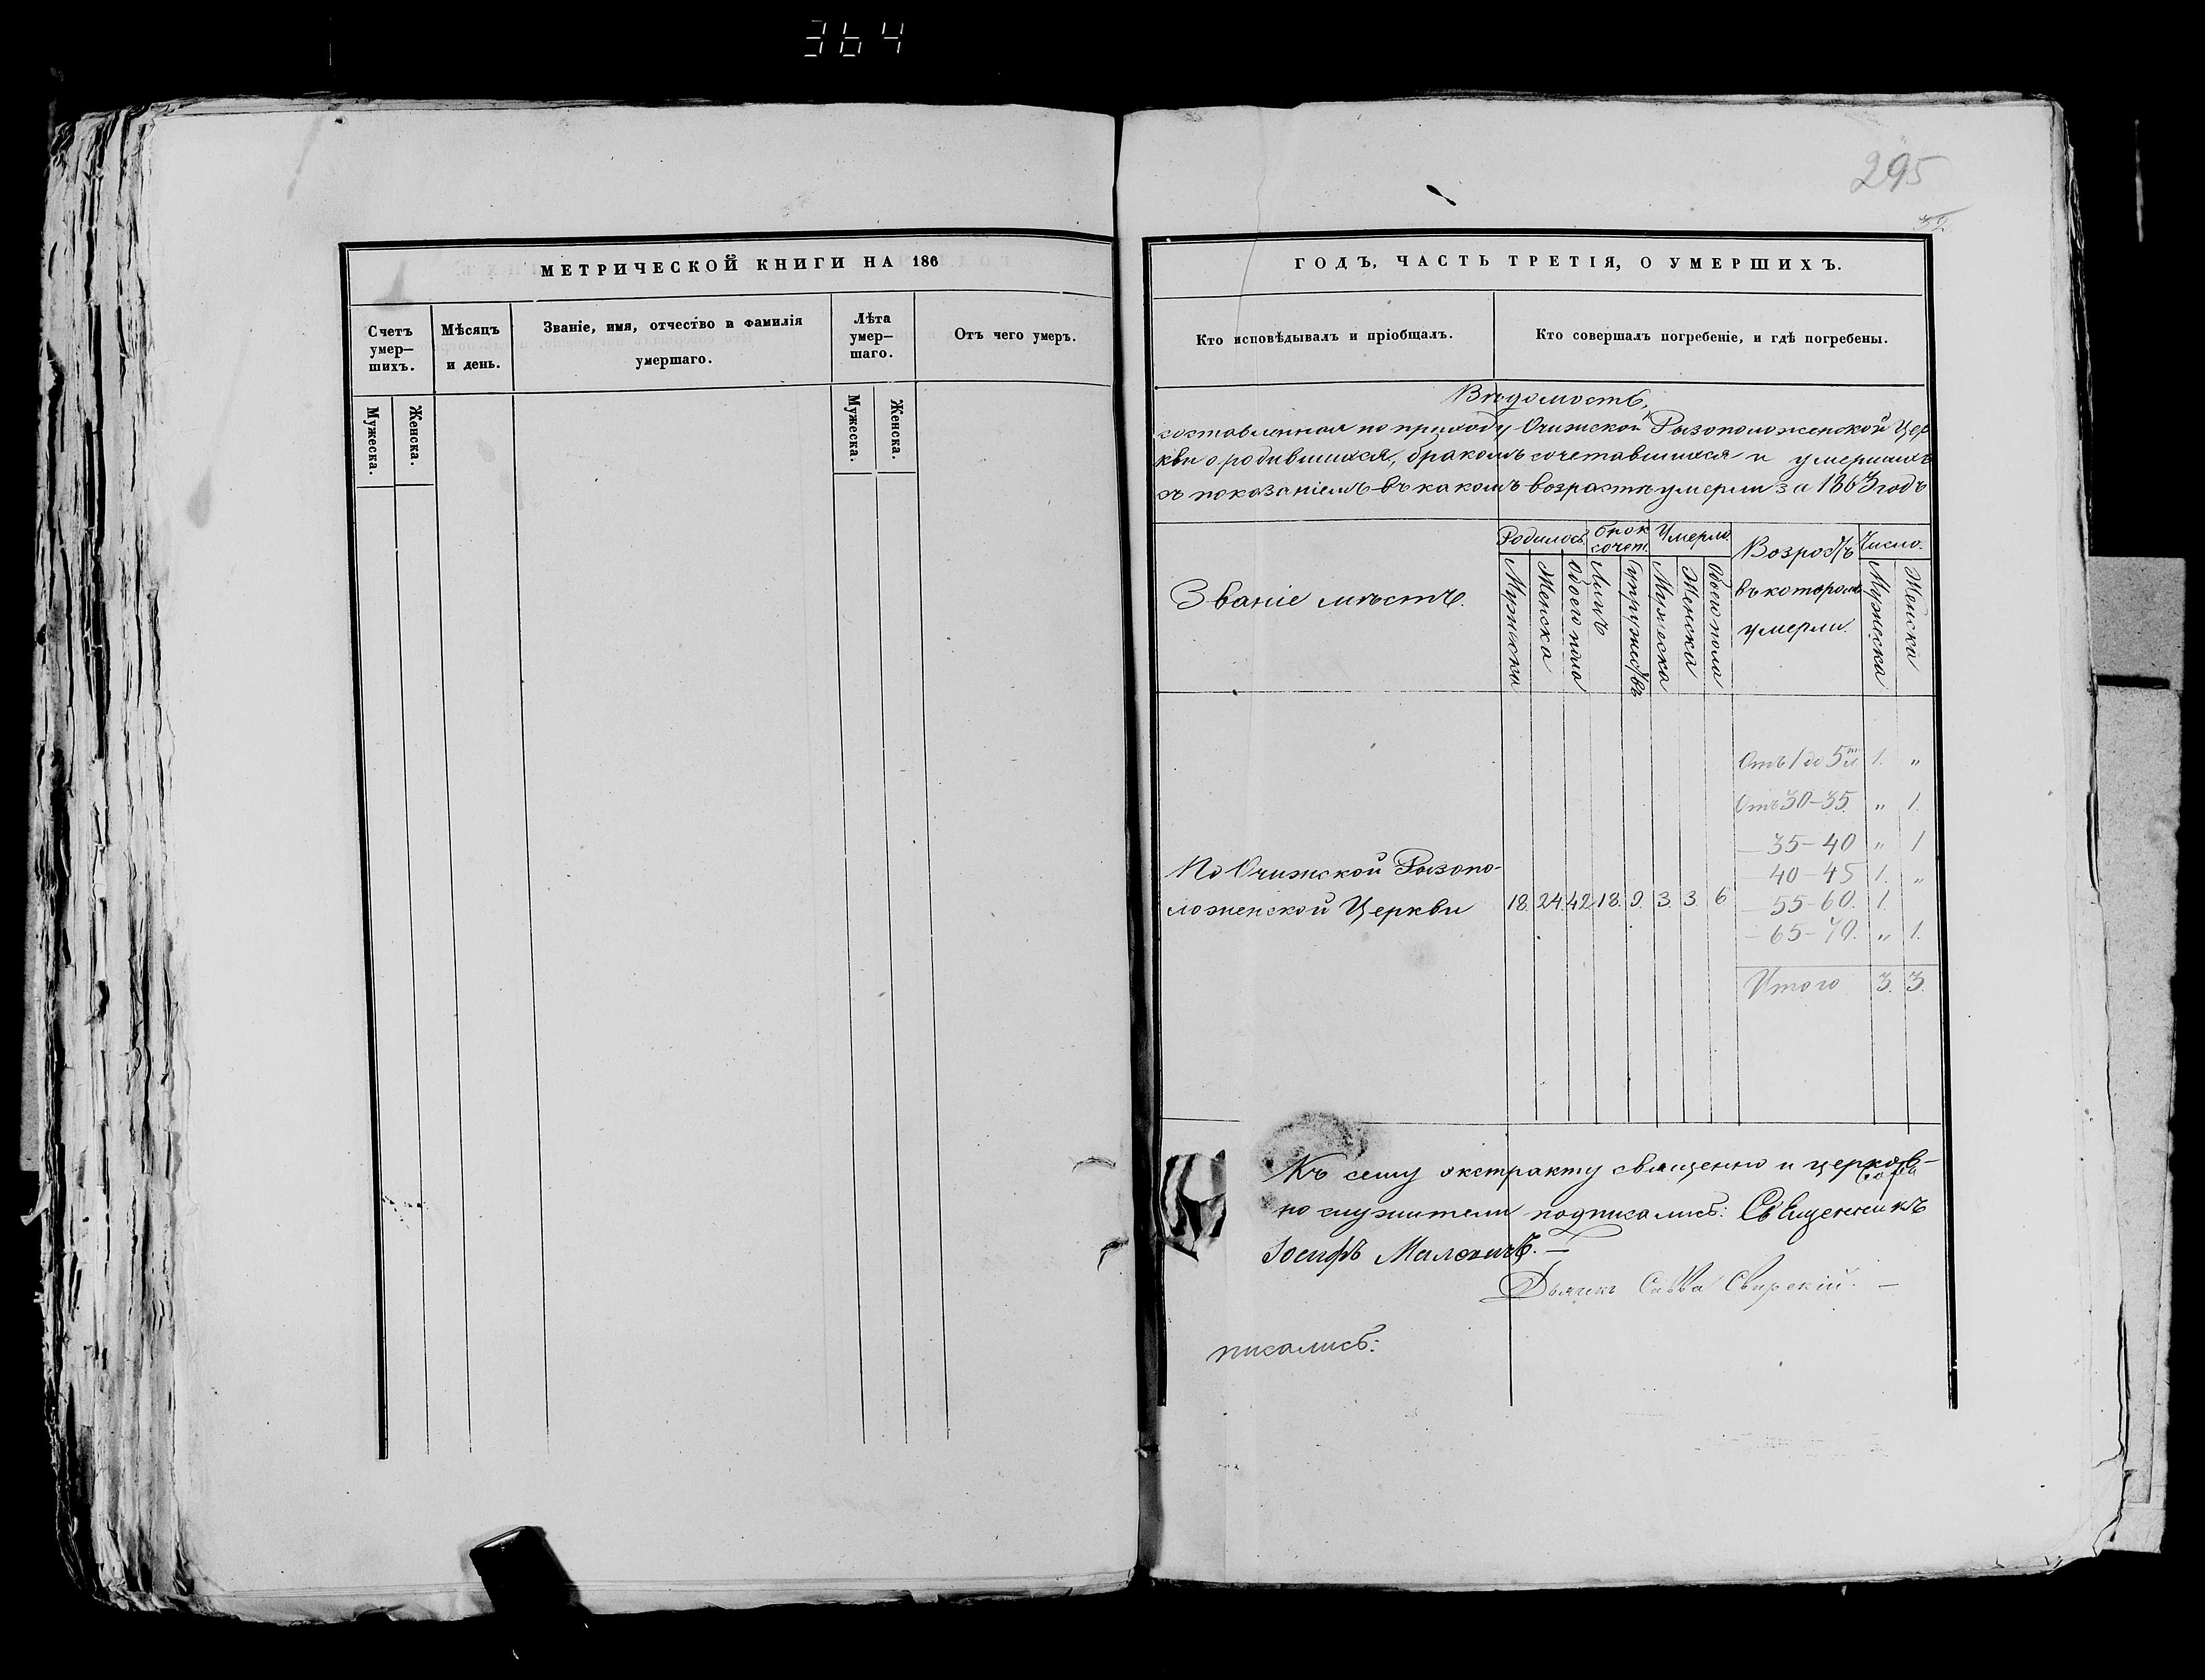 364
295
32.
МЕТРИЧЕСКОЙ КНИГИ НА 186
Счетъ умер-шихъ.
Мѣсяцъ и день.
Званіе, имя, отчество и фамилія умершаго.
Лѣта умер-шаго.
Отъ чего умеръ.
Мужеска.
Женска.
Мужеска.
Женска.
ГОДЪ, ЧАСТЬ ТРЕТІЯ, О УМЕРШИХЪ.
Кто исповѣдывалъ и пріобщалъ.
Кто совершалъ погребеніе, и гдѣ погребены.
Вѣдомость,
составленная по приходу Очижской Ризоположенской Цер
кви о родившихся, бракомъ сочетавшихся и умершихъ
съ показаніемъ въ какомъ возрастѣ умерли за 1863 годъ
Званіе мѣстъ.
Родилось.
брак. сочет.
Умерло.
Возрастъ въ которомъ умерли.
Число.
Мужеска
Женска
Обоего пола
Лицъ
Супружествъ
Мужеска
Женска
Обоего пола
Мужеска
Женска
Отъ 1 до 5ти 1. "
Отъ 30-35. " 1.
— 35-40 " 1
40-45 1. "
По Очижской Ризопо-
ложенской Церкви 18. 24. 42. 18. 9. 3. 3. 6
— 55-60. 1.
— 65-70. " 1.
Итого 3. 3.
Къ сему экстракту священно и церков-
но служители подписались: Священникъ
Іосифъ Малевичъ. —
Дьячекъ Савва Свирскій. —
писались: